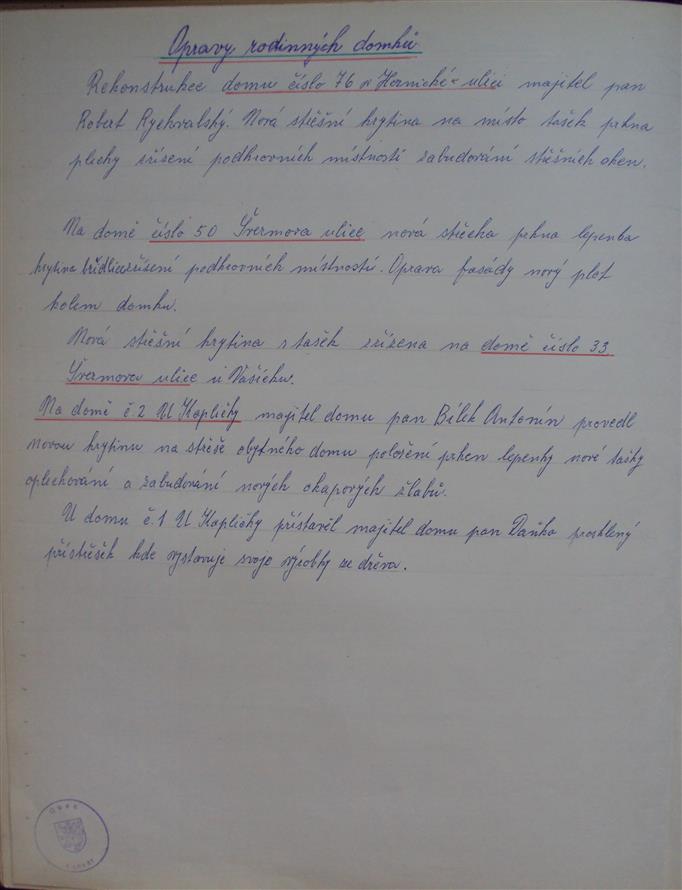 Opravy rodinných domků
Rekonstrukce domu číslo 76 v Hornické ulici majitel pan
Robert Rychvalský. Nová střešní krytina na místo tašek prkna
plechy zřízení podkrovních místností zabudování střešních oken.
Na domě číslo 50 Švermova ulice nová střecha prkna lepenka
krytina břidlice zřízení podkrovních místností. Oprava fasády nový plot
kolem domku.
Nová střešní krytina z tašek zřízena na domě číslo 33
Švermova ulice u Vašíčku.
Na domě č.2 U Kapličky majitel domu pan Bílek Antonín provedl
novou krytinu na střeše obytného domu položení prken lepenky nové tašky
oplechování a zabudování nových okapových žlabů.
U domu č.1 U Kapličky přistavěl majitel domu pan Daňko prosklený
přístřešek kde vystavuje svoje výrobky ze dřeva.
OBEC